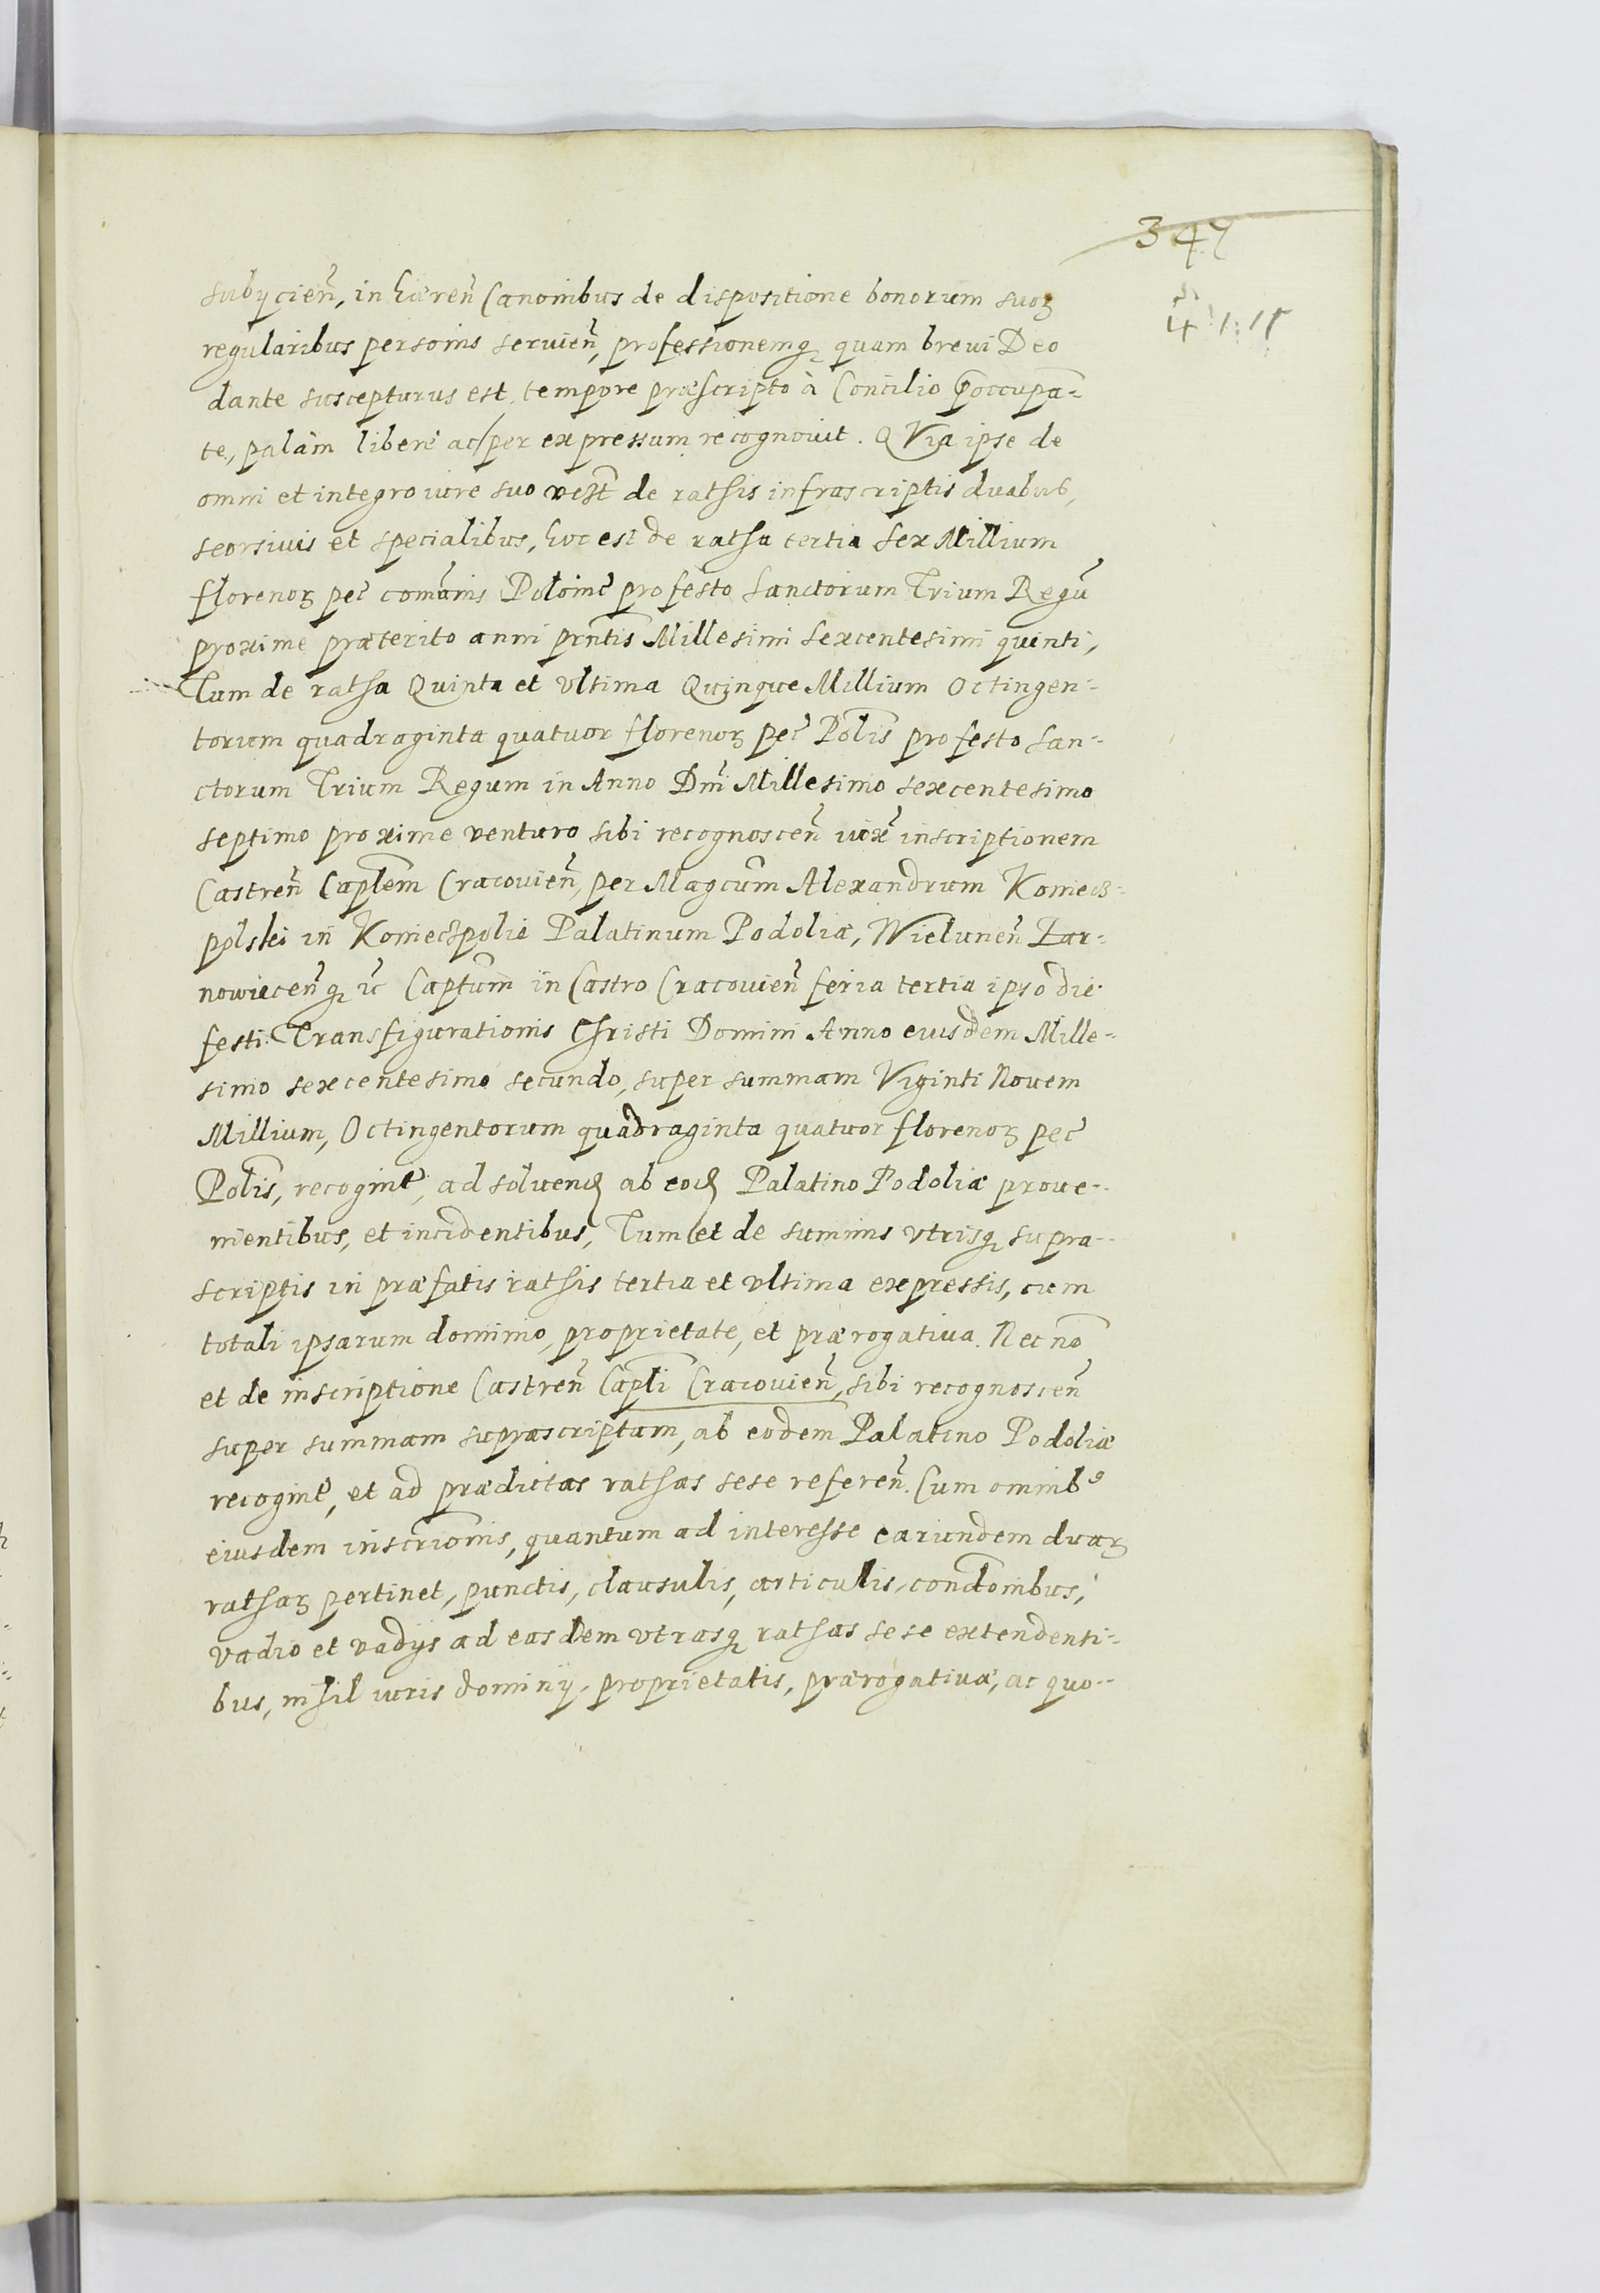 349
subÿcien̄, inhæren̄ Canonibus de dispositione bonorum suoꝝ
regularibus personis seruien̄, professionemq; quam breui Deo
dante suscepturus est, tempore præscripto à Concilio p̄occupa-
te, palàm liberè ac per expressum recognouit. Quia ipse de
omni et integro iure suo de rathis infrascriptis duabus,
seorsiuis et specialibus, hoc est de ratha tertia sex Millium
florenoꝝ pec̄ com̄unis Polonic̄ pro festo Sanctorum Trium Regū
proxime præterito anni prn̄tis Millesimi sexcentesimi quinti,
Tum de ratha Quinta et vltima Quinque Millium Octingen-
torum quadraginta quatuor florenoꝝ pec̄ Polis̄ pro festo San-
ctorum Trium Regum in Anno Dn̄i Millesimo sexcentesimo
septimo proxime venturo sibi recognoscen̄ iux̄ inscriptionem
Castren̄ Cap̄lem Cracouien̄, per Magcum̄ Alexandrum Koniecz-
polski in Konieczpolie Palatinum Podoliæ, Wielunen̄ Zar-
nowiecen̄q; ic̄ Captum̄ in Castro Cracouien̄ feria tertia ipso die
festi Transfigurationis Christi Domini Anno eiusdem Mille-
simo sexcentesimo secundo, super summam Viginti Nouem
Millium, Octingentorum quadraginta quatuor florenoꝝ pec̄
Polis̄, recognit̄, ad soluend ab eod Palatino Podoliæ proue-
nientibus, et incidentibus, Tum et de summis vtrisq; supra-
scriptis in præfatis rathis tertia et vltima expressis, cum
totali ipsarum dominio, proprietate, et prærogatiua. Nec nō
et de inscriptione Castren̄ Cap̄li Cracouien̄, sibi recognoscen̄
super summam suprascriptam, ab eodem Palatino Podoliæ
recognit̄, et ad prædictas rathas sese referen̄. Cum omnibꝰ
eiusdem inscrīonis, quantum ad interesse earundem duaꝝ
rathaꝝ pertinet, punctis, clausulis, articulis, cond̄onibus,
vadio et vadÿs ad easdem vtrasq; rathas sese extendenti-
bus, nihil iuris dominÿ, proprietatis, prærogatiuæ, ac quo-